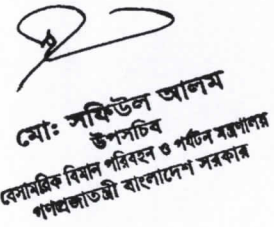 মোঃ সফিউল আলম
উপসচিব
বেসামরিক বিমান পরিবহন ও পর্যটন মন্ত্রণালয়
গণপ্রজাতন্ত্রী বাংলাদেশ সরকার